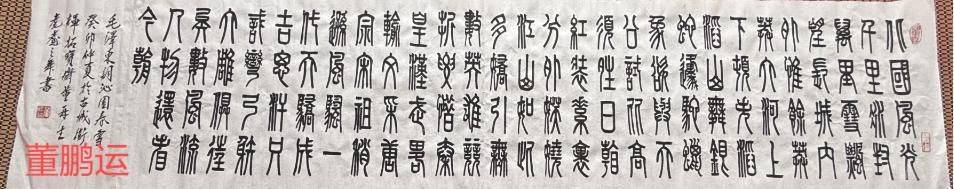 北國風光
千里冰封
萬里雪飄
望長城內
外惟餘莽
莽大河上
下頓失滔
滔山舞銀
蛇原馳蠟
象欲與天
公試比高
須晴日看
紅裝素裹
分外妖嬈
江山如此
多嬌引無
數英雄競
折腰惜秦
皇漢武略
輸文采唐
宗宋祖稍
遜風騷一
代天驕成
吉思汗只
識彎弓射
大雕俱往
矣數風流
人物還看
今朝
毛澤東詞沁園春雪
癸卯仲夏於古城
董鹏运